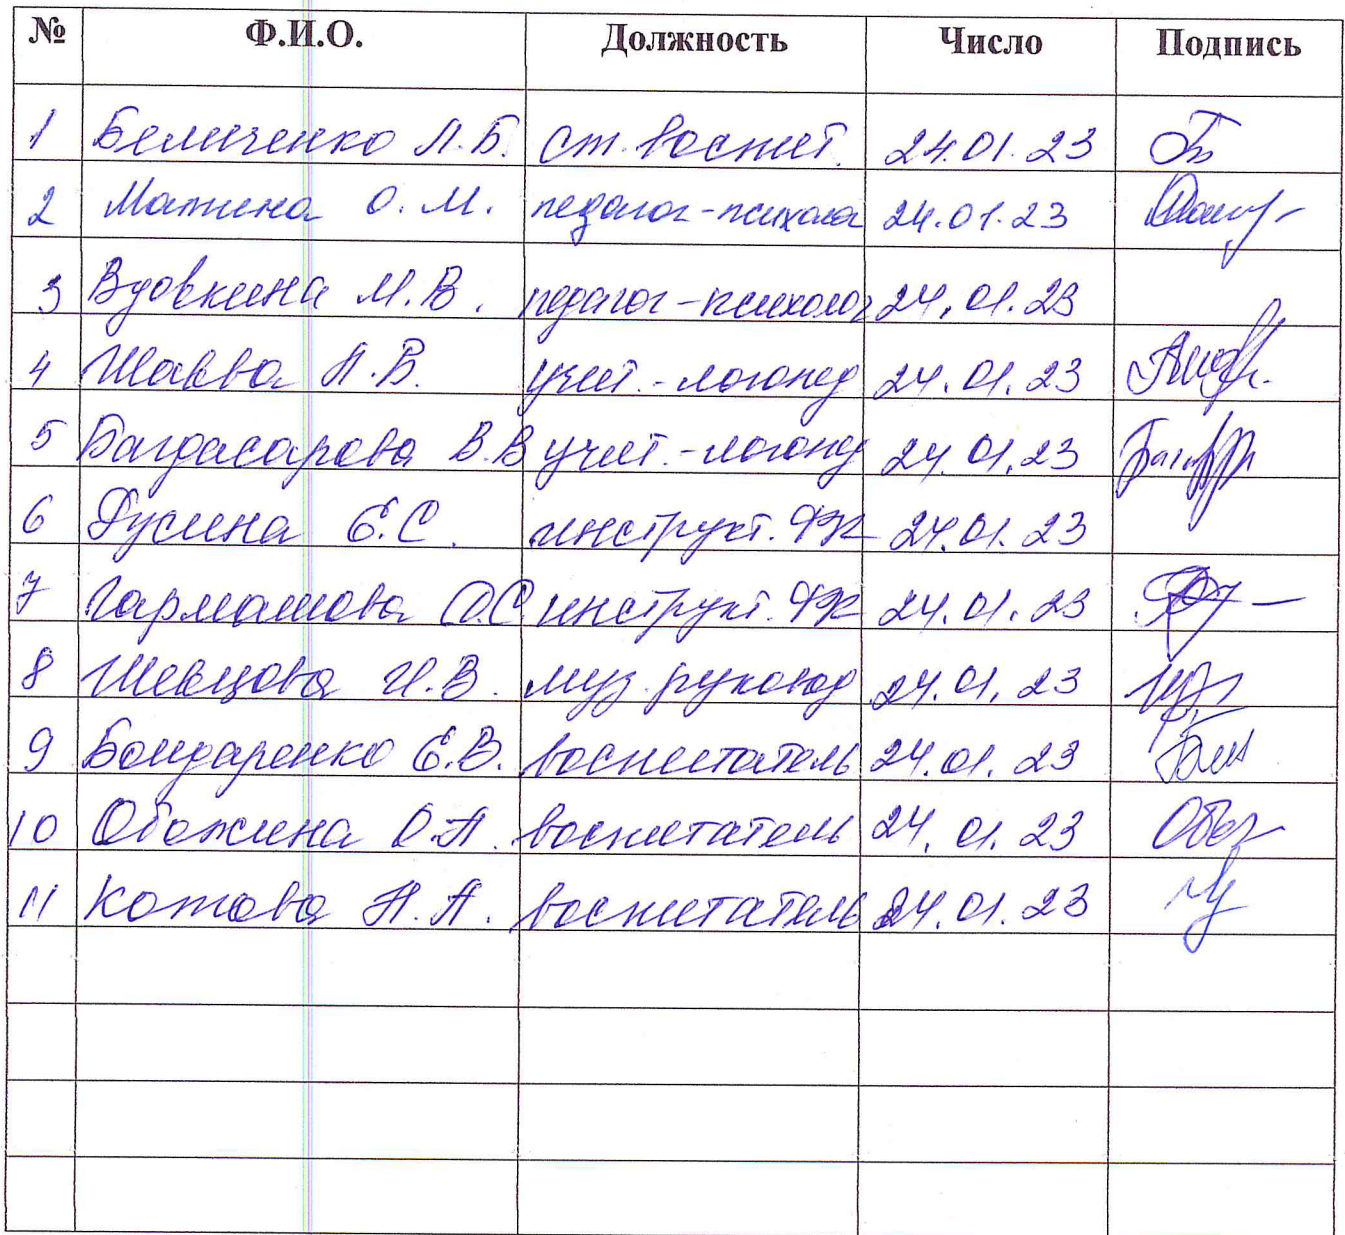 № Ф.И.О. Должность Число Подпись
1 Беличенко Л.Б. ст. воспит. 24.01.23
2 Матина О.М. педагог-психолог 24.01.23
3 Вдовкина М.В. педагог-психолог 24.01.23
4 Шавва А.В. учит.-логопед 24.01.23
5 Багдасарова В.В учит.-логопед 24.01.23
6 Дусина Е.С. инструкт. ФК 24.01.23
7 Гармашова О.С инструкт. ФК 24.01.23
8 Шевцова И.В. муз. руковод 24.01.23
9 Бондаренко Е.В. воспитатель 24.01.23
10 Обожина О.А. воспитатель 24.01.23
11 Котова Н.А. воспитатель 24.01.23